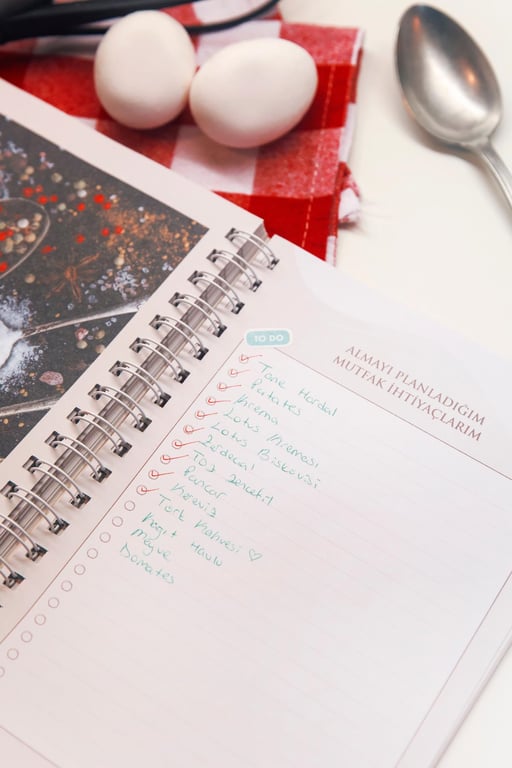 TO DO
ALMAYI PLANLADIĞIM
MUTFAK İHTİYAÇLARIM
Tane Hardal
Patates
Krema
Lotus Kreması
Lotus Bisküvisi
Zerdeçal
Toz Zencefil
Pancar
Kereviz
Türk Kahvesi ♡
Kağıt Havlu
Meyve
Domates